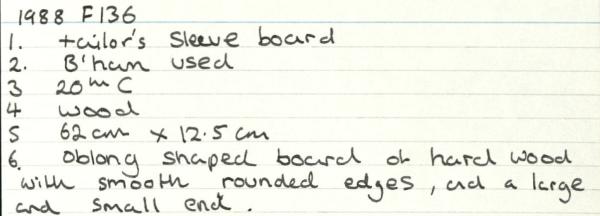 1988 F136
1. tailor's sleeve board
2. B'ham used
3 20th C
4 wood
5 62cm x 12.5 cm
6. oblong shaped board of hard wood
with smooth rounded edges, and a large
and small end.